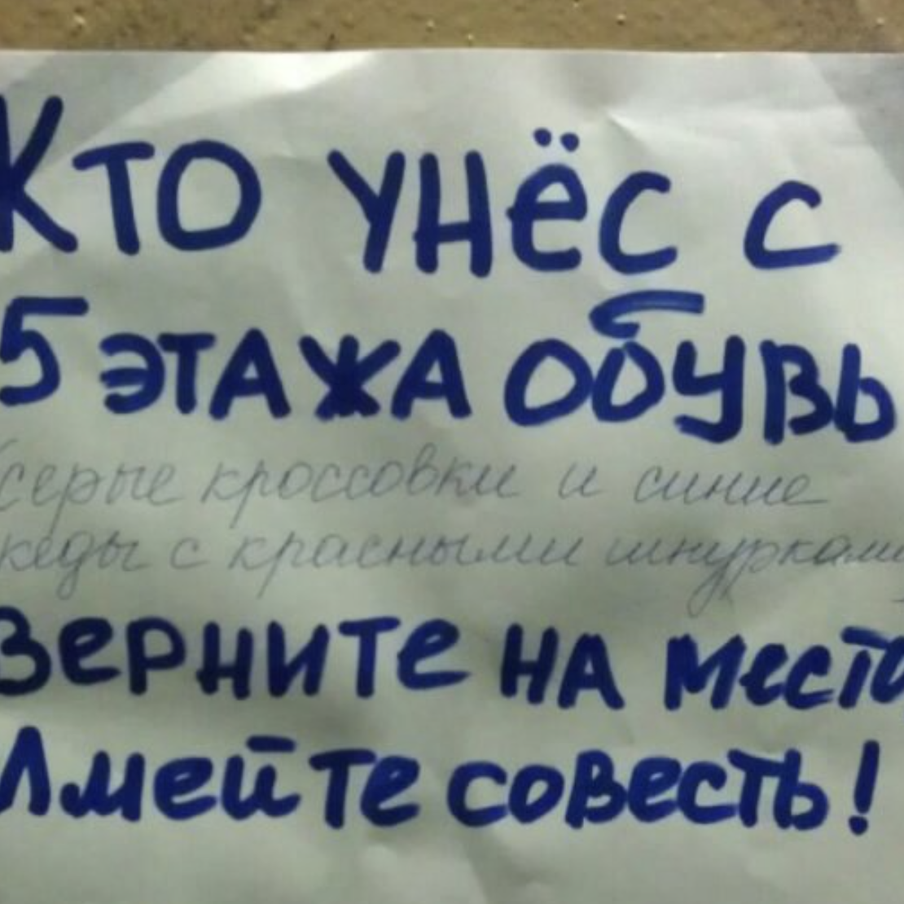 Кто унёс с
5 этажа обувь
(серые кроссовки и синие
кеды с красными шнурками)
верните на место
Имейте совесть!